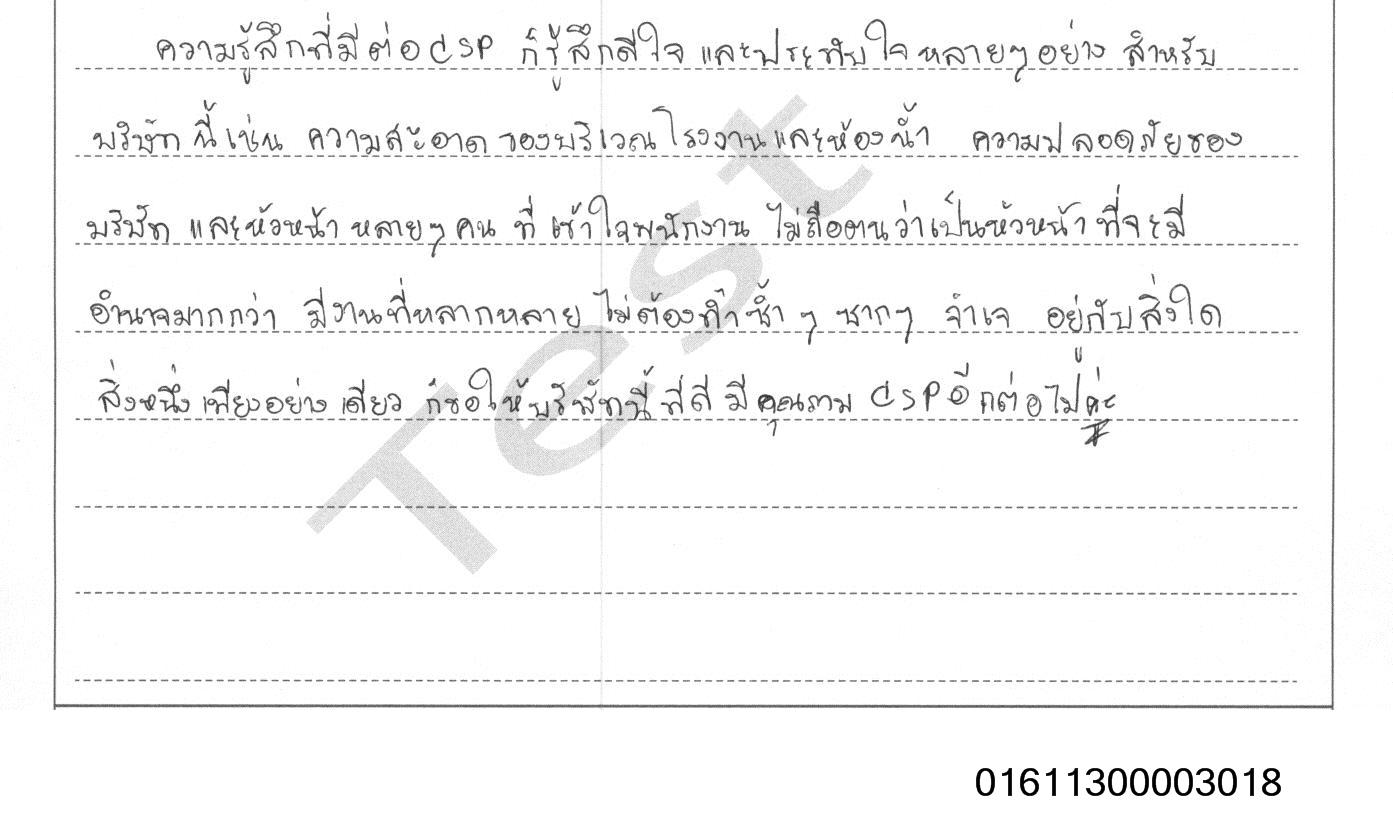 ความรู้สึกที่มีต่อ CSP ก็รู้สึกดีใจ และประทับใจ หลายๆอย่าง สำหรับ
บริษัท นี้ เช่น ความสะอาด ของบริเวณ โรงงานและห้องน้ำ ความปลอดภัยของ
บริษัท และหัวหน้า หลายๆ คน ที่ เข้าใจพนักงาน ไม่ถือตนว่าเป็นหัวหน้า ที่จะมี
อำนาจมากกว่า มีงานที่หลากหลาย ไม่ต้องทำซ้ำ ๆ ซากๆ จำเจ อยู่กับสิ่งใด
สิ่งหนึ่ง เพียงอย่าง เดียว ก็ขอให้บริษัทนี้ ที่ดี มีคุณภาพ CSP อีกต่อไปค่ะ
Test
01611300003018